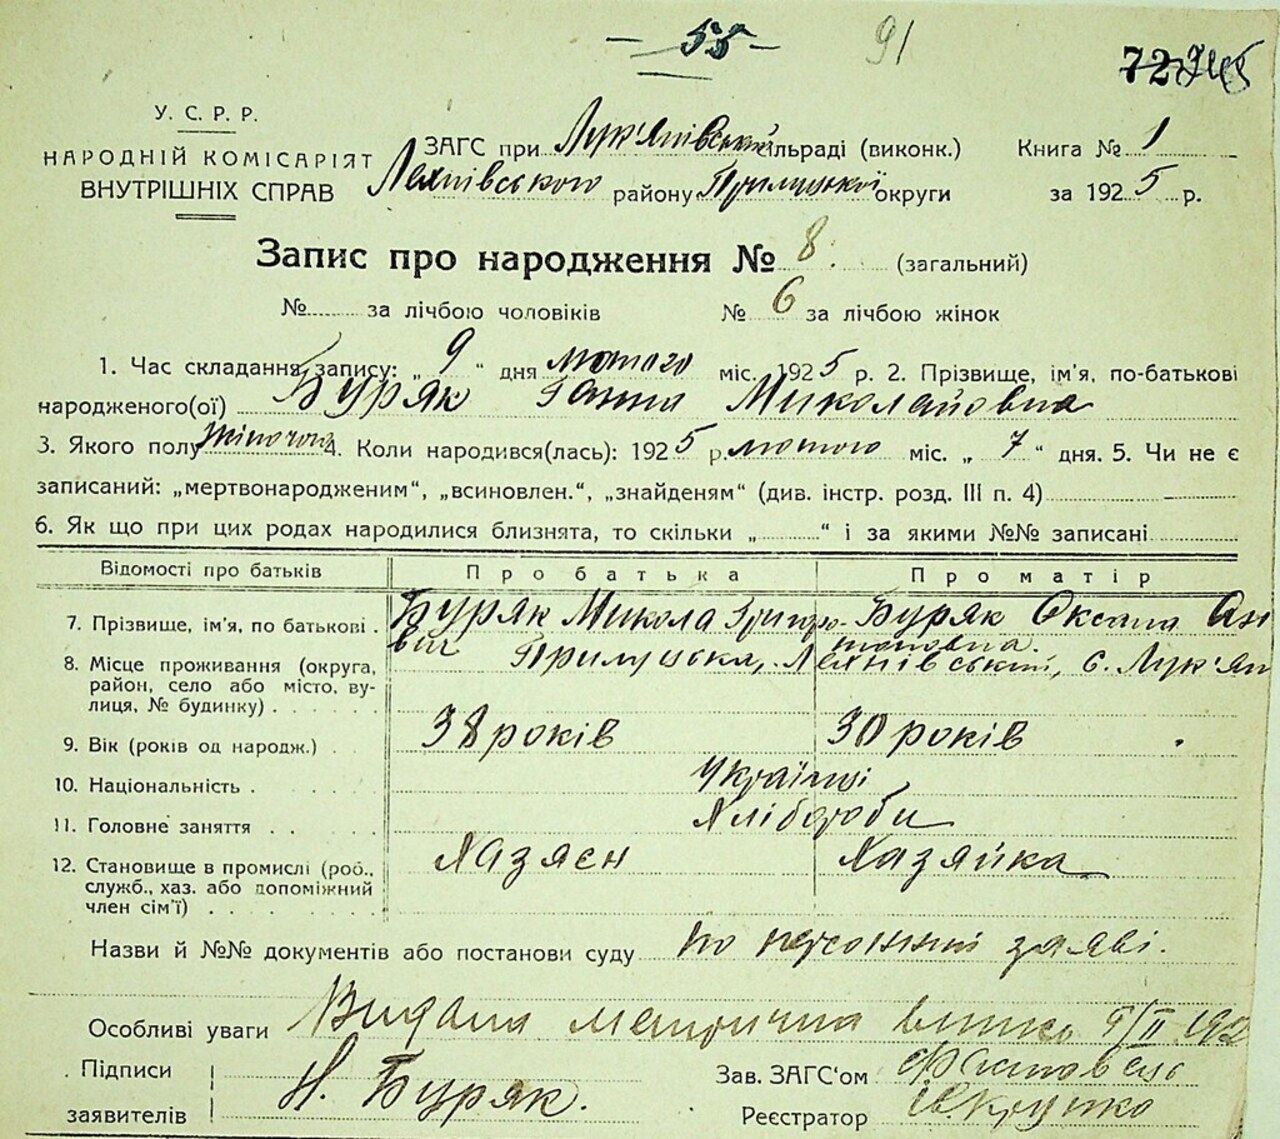 — 55 —
91
72
У. С. Р. Р.
НАРОДНІЙ КОМІСАРІЯТ
ВНУТРІШНІХ СПРАВ
ЗАГС при Лук'янівській сільраді (виконк.) Книга № 1
Лехнівського району Прилуцької округи за 1925 р.
Запис про народження № 8. (загальний)
№ за лічбою чоловіків № 6 за лічбою жінок
1. Час складання запису: „ 9 “ дня лютого міс. 1925 р. 2. Прізвище, ім'я, по-батькові
народженого(ої) Буряк Ганна Миколаївна
3. Якого полу жіночого 4. Коли народився(лась): 1925 р. лютого міс. „ 7 “ дня. 5. Чи не є
записаний: „мертвонародженим“, „всиновлен.“, „знайденям“ (див. інстр. розд. III п. 4)
6. Як що при цих родах народилися близнята, то скільки „ “ і за якими №№ записані
Відомості про батьків Про батька Про матір
7. Прізвище, ім'я, по батькові . Буряк Микола Григоро- Буряк Оксана Ан
вич тоновна.
8. Місце проживання (округа, Прилуцька, Лехнівський, с. Лук'ян
район, село або місто, ву-
лиця, № будинку) . . . .
9. Вік (років од народж.) . 38 років 30 років
10. Національність . . . . Українці
11. Головне заняття . . . . Хлібороби
12. Становище в промислі (роб., Хазяєн Хазяйка
служб., хаз. або допоміжний
член сім'ї) . . . . . .
Назви й №№ документів або постанови суду по персональній заяві.
Особливі уваги Видана метрична випис 9/II 192
Підписи Зав. ЗАГС'ом
заявителів Н. Буряк. Реєстратор